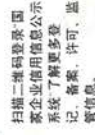 扫描二维码登录‘国
家企业信用信息公示
系统’了解更多登
记、备案、许可、监
管信息。